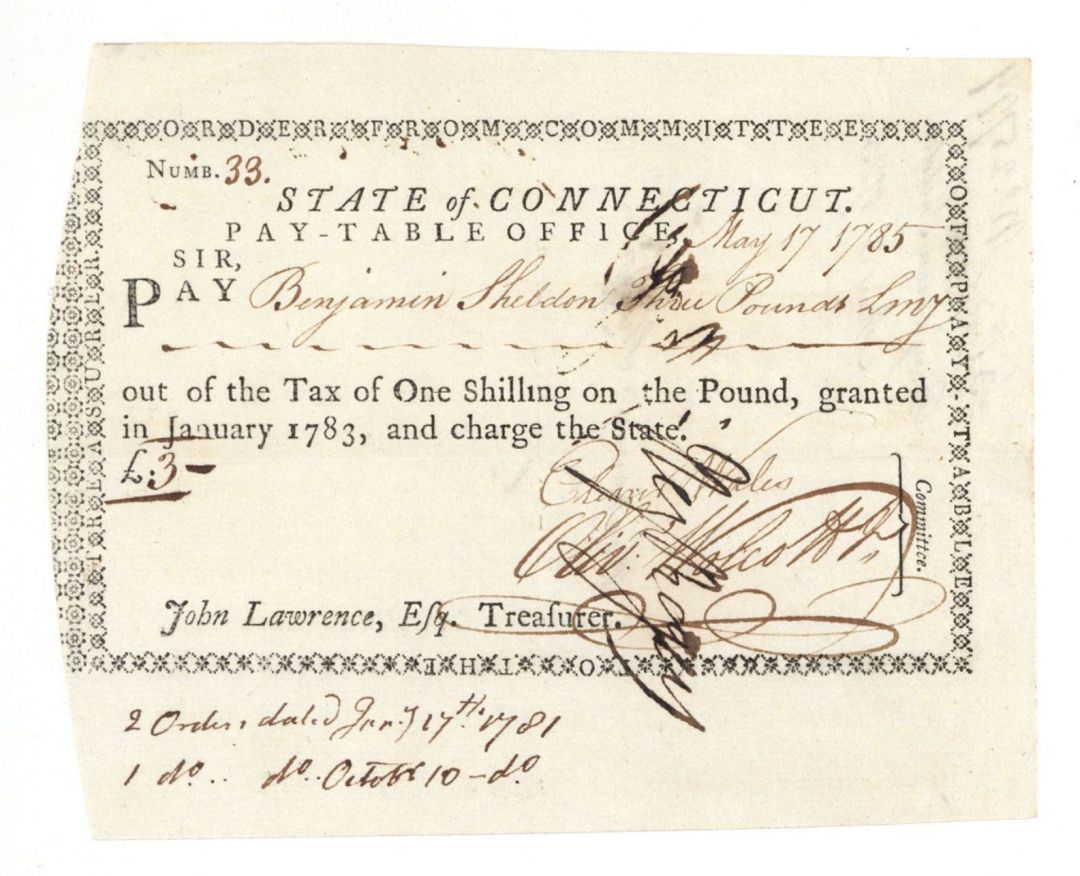 ORDER FROM COMMITTEE
OF PAY-TABLE
TO THE
TREASURER
NUMB. 33.
STATE of CONNECTICUT.
PAY-TABLE OFFICE, May 17 1785
SIR,
PAY Benjamin Sheldon Three Pounds Lmy
out of the Tax of One Shilling on the Pound, granted
in January 1783, and charge the State.
£:3-
Wales
Oliv: Wolcott Jr
Committee.
John Lawrence, Eſq. Treaſurer.
2 Orders dated Jany 17th. 1781
1 do.. do.. Octobr 10 - do